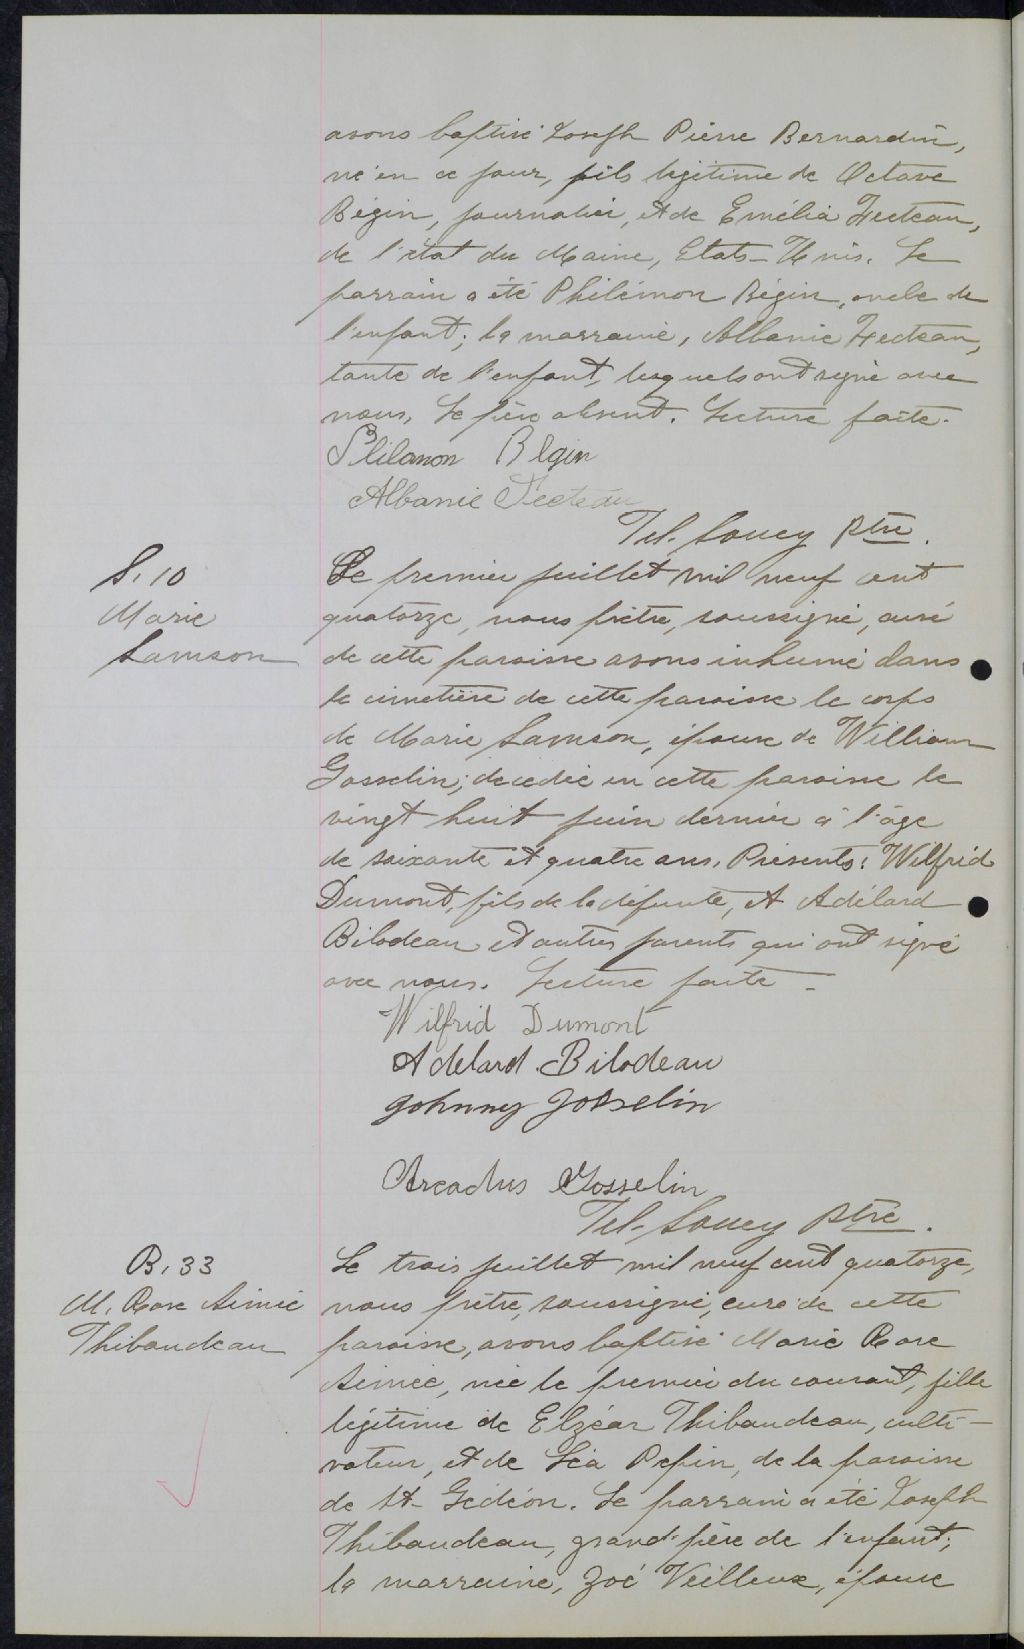 avons baptisé Joseph Pierre Bernardin,
né en ce jour, fils légitime de Octave
Bégin, journalier, et de Emélia Fecteau,
de l'état du Maine, Etats-Unis. Le
parrain a été Philémon Bégin, oncle de
l'enfant; la marraine, Albanie Fecteau,
tante de l'enfant, lesquels ont signé avec
nous, Le père absent. Lecture faite.
Philemon Begin
Albanie Fecteau
Tel. Soucy Ptre.
S. 10
Marie
Samson
Le premier juillet mil neuf cent
quatorze, nous prêtre, soussigné, curé
de cette paroisse avons inhumé dans
le cimetière de cette paroisse le corps
de Marie Samson, épouse de William
Gosselin; décédée en cette paroisse le
vingt huit juin dernier à l'âge
de soixante et quatre ans. Présents: Wilfrid
Dumont, fils de la défunte, et Adélard
Bilodeau et autres parents qui ont signé
avec nous. Lecture faite.
Wilfrid Dumont
Adelard Bilodeau
Johnney Gosselin
Arcadus Gosselin
Tel. Soucy Ptre.
B. 33
M. Rose Aimée
Thibaudeau
Le trois juillet mil neuf cent quatorze,
nous prêtre, soussigné, curé de cette
paroisse, avons baptisé Marie Rose
Aimée, née le premier du courant, fille
légitime de Elzéar Thibaudeau, culti-
vateur, et de Léa Pepin, de la paroisse
de St-Gédéon. Le parrain a été Joseph
Thibaudeau, grand-père de l'enfant;
la marraine, Zoé Veilleux, épouse